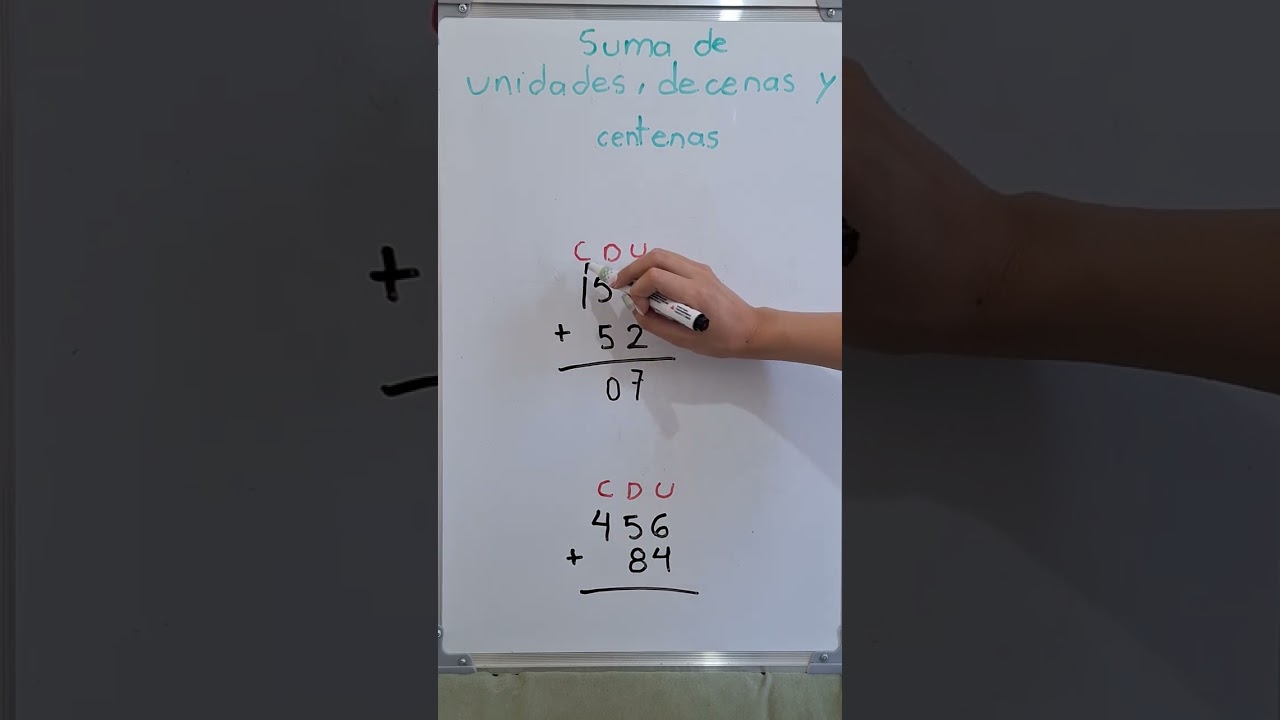 Suma de
unidades, decenas y
centenas
C D U
1
15
+ 52
07
C D U
456
+ 84